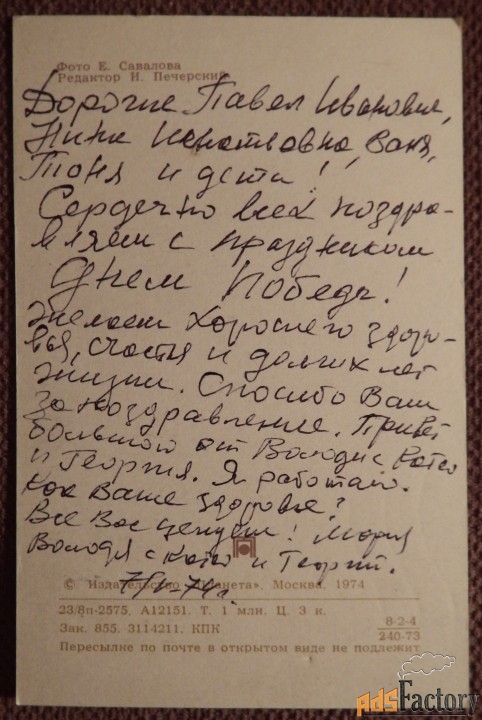 Фото Е. Савалова
Редактор И. Печерский
Дорогие Павел Иванович,
Нина Игнатьевна, Ваня,
Тоня и дети!
Сердечно всех поздра-
вляем с праздником
Днем Победы!
Желаем хорошего здоро-
вья, счастья и долгих лет
жизни. Спасибо Вам
за поздравление. Привет
большой от Володи с Катей
и Георгия. Я работаю.
Как Ваше здоровье?
Все Вас целуем! Мария
Володя с Катей и Георгий.
© Издательство «Планета». Москва, 1974
23/8п-2575. А12151. Т. 1 млн. Ц. 3 к.
Зак. 855. 3114211. КПК
8-2-4
240-73
Пересылке по почте в открытом виде не подлежит
AdsFactory